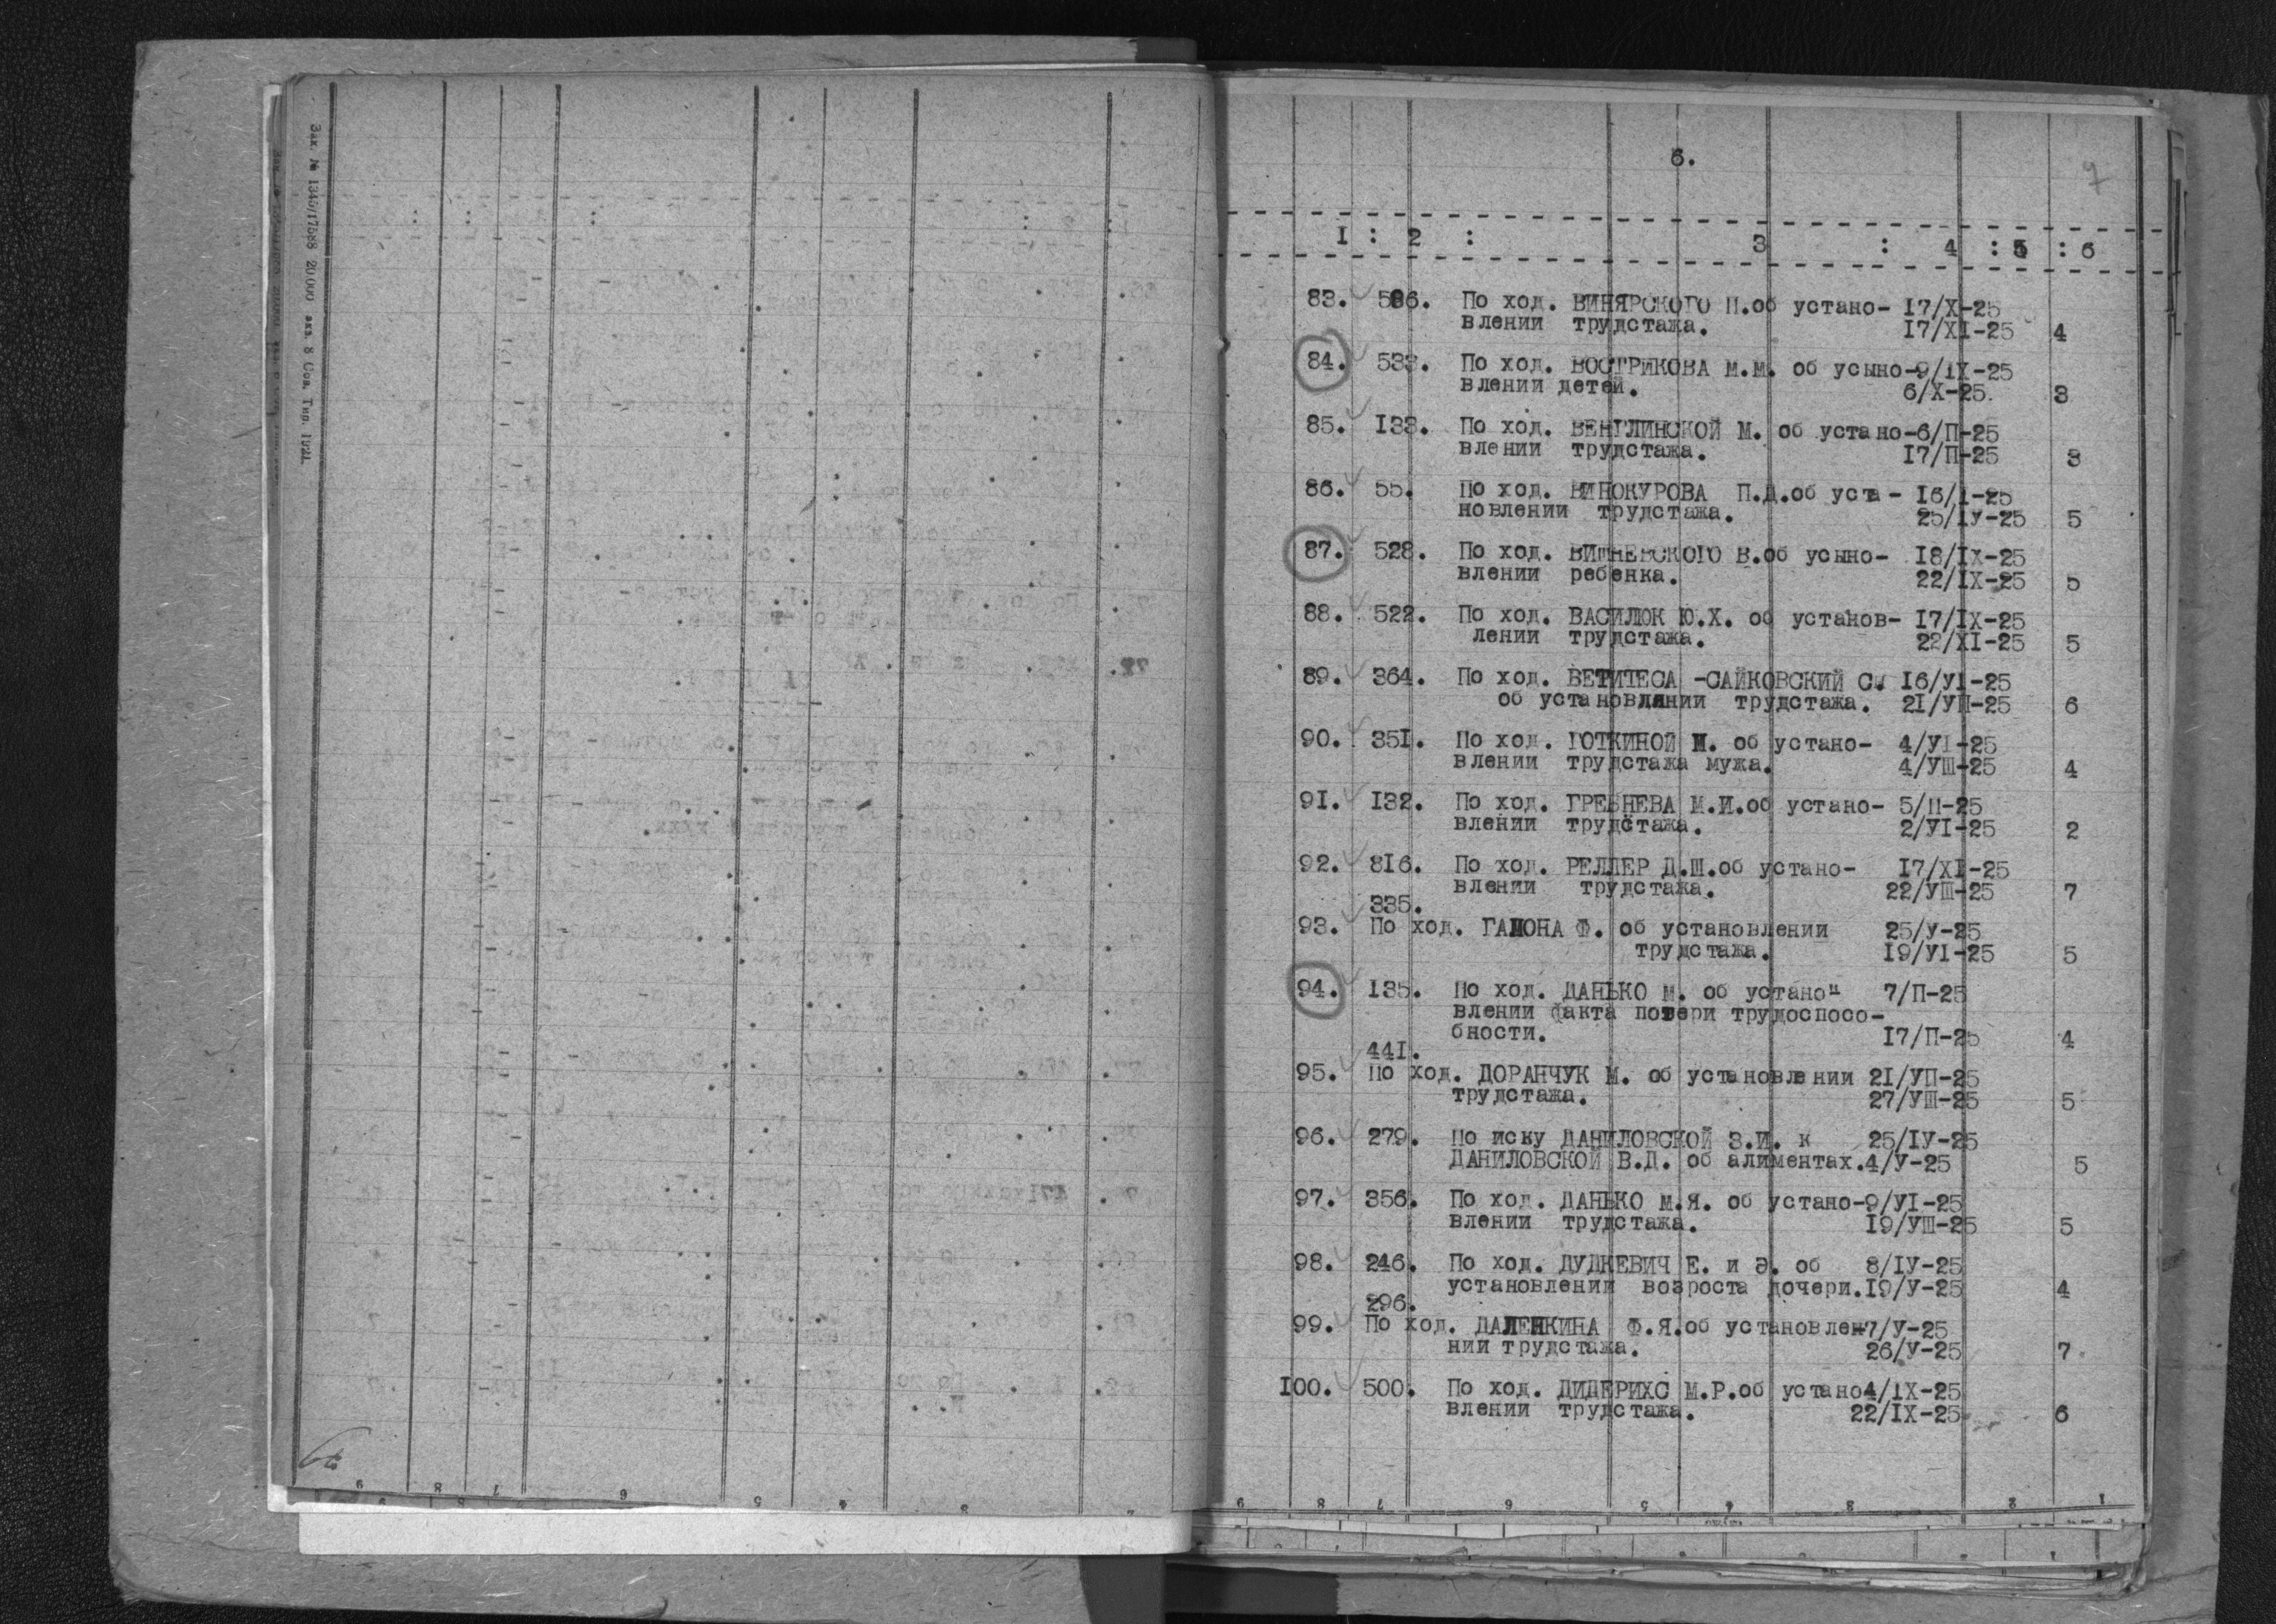 Зак. № 1345/17588 20.000 экз. 8 Сов. Тип. 1921.
6.
1 : 2 : 3 : 4 : 5 : 6
83. 586. По ход. ВИНЯРСКОГО П.об устано- 17/X-25
влении трудстажа. 17/XI-25 4
84. 533. По ход. ВОСТРИКОВА М.М. об усыно-9/IX-25
влении детей. 6/X-25. 3
85. 133. По ход. ВЕНГЛИНСКОЙ М. об устано-6/П-25
влении трудстажа. 17/П-25 3
86. 55. По ход. ВИНОКУРОВА П.Д.об уста- 16/1-25
новлении трудстажа. 25/1У-25 5
87. 528. По ход. ВИШНЕВСКОГО В.об усыно- 18/IX-25
влении ребенка. 22/IX-25 5
88. 522. По ход. ВАСИЛЮК Ю.Х. об установ- 17/IX-25
лении трудстажа. 22/XI-25 5
89. 364. По ход. ВЕТИТЕСА -САЙКОВСКИЙ С. 16/У1-25
об установлянии трудстажа. 21/УП-25 6
90. 351. По ход. ГОТКИНОЙ М. об устано- 4/УI-25
влении трудстажа мужа. 4/УШ-25 4
91. 132. По ход. ГРЕБНЕВА М.И.об устано- 5/П-25
влении трудстажа. 2/УI-25 2
92. 816. По ход. РЕЛЛЕР Д.Ш.об устано- 17/XI-25
влении трудстажа. 22/УШ-25 7
335.
93. По ход. ГАМОНА Ф. об установлении 25/У-25
трудстажа. 19/УI-25 5
94. 135. По ход. ДАНЬКО М. об устано" 7/П-25
влении факта потери трудоспосо-
бности. 17/П-25 4
441.
95. По ход. ДОРАНЧУК М. об установлении 21/УП-25
трудстажа. 27/УШ-25 5
96. 279. По иску ДАНИЛОВСКОЙ З.И. к 25/IУ-25
ДАНИЛОВСКОЙ В.Д. об алиментах.4/У-25 5
97. 356. По ход. ДАНЬКО М.Я. об устано-9/УI-25
влении трудстажа. 19/УШ-25 5
98. 246. По ход. ДУДКЕВИЧ Е. и Э. об 8/IУ-25
установлении возроста дочери.19/У-25 4
296.
99. По ход. ДАЛЕНКИНА Ф.Я.об установлен-7/У-25
нии трудстажа. 26/У-25 7
100. 500. По ход. ДИДЕРИХС М.Р.об устано4/IX-25
влении трудстажа. 22/IX-25 6
9 8 7 6 5 4 3 2
9 8 7 6 5 4 3 2 1